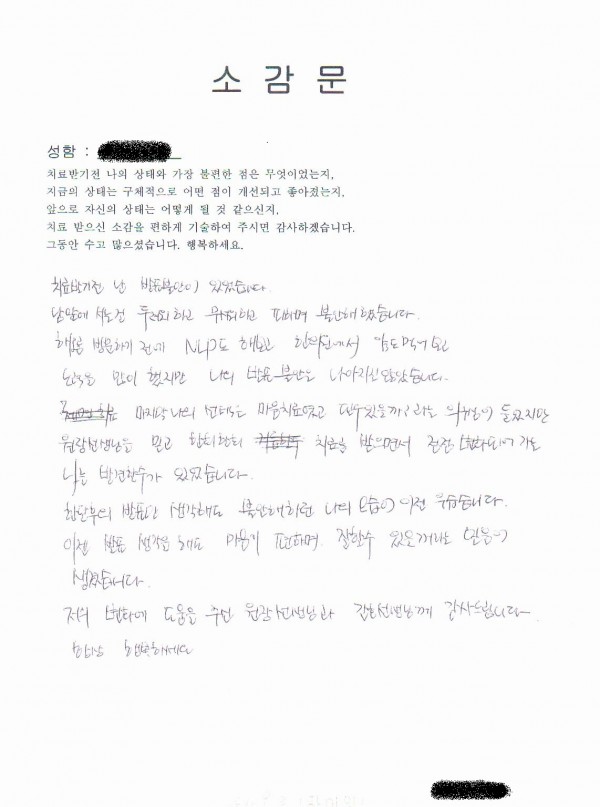 소감문
성함 :
치료받기전 나의 상태와 가장 불편한 점은 무엇이었는지,
지금의 상태는 구체적으로 어떤 점이 개선되고 좋아졌는지,
앞으로 자신의 상태는 어떻게 될 것 같으신지,
치료 받으신 소감을 편하게 기술하여 주시면 감사하겠습니다.
그동안 수고 많으셨습니다. 행복하세요.
치료받기전 난 발표불안이 있었습니다.
남앞에 서는건 두려워하고 무서워하고 피하며 불안해 했습니다.
방문하기 전에 NLP도 해보고 한의원에서 약도 먹어 보고
노력을 많이 했지만 나의 발표 불안은 나아지진 않았습니다.
마지막 나의 선택은 마음치료였고 될수있을까? 라는 의구심이 들었지만
원장선생님을 믿고 치료를 받으면서 점점 변화되어 가는
나를 발견할수가 있었습니다.
발표만 생각해도 불안해하던 나의 모습이 이젠 우습습니다.
이젠 발표 생각을 해도 마음이 편하며 잘할수 있을꺼라는 믿음이
생겼습니다.
저의 변화에 도움을 주신 원장선생님과 선생님께 감사드립니다.
항상 행복하세요